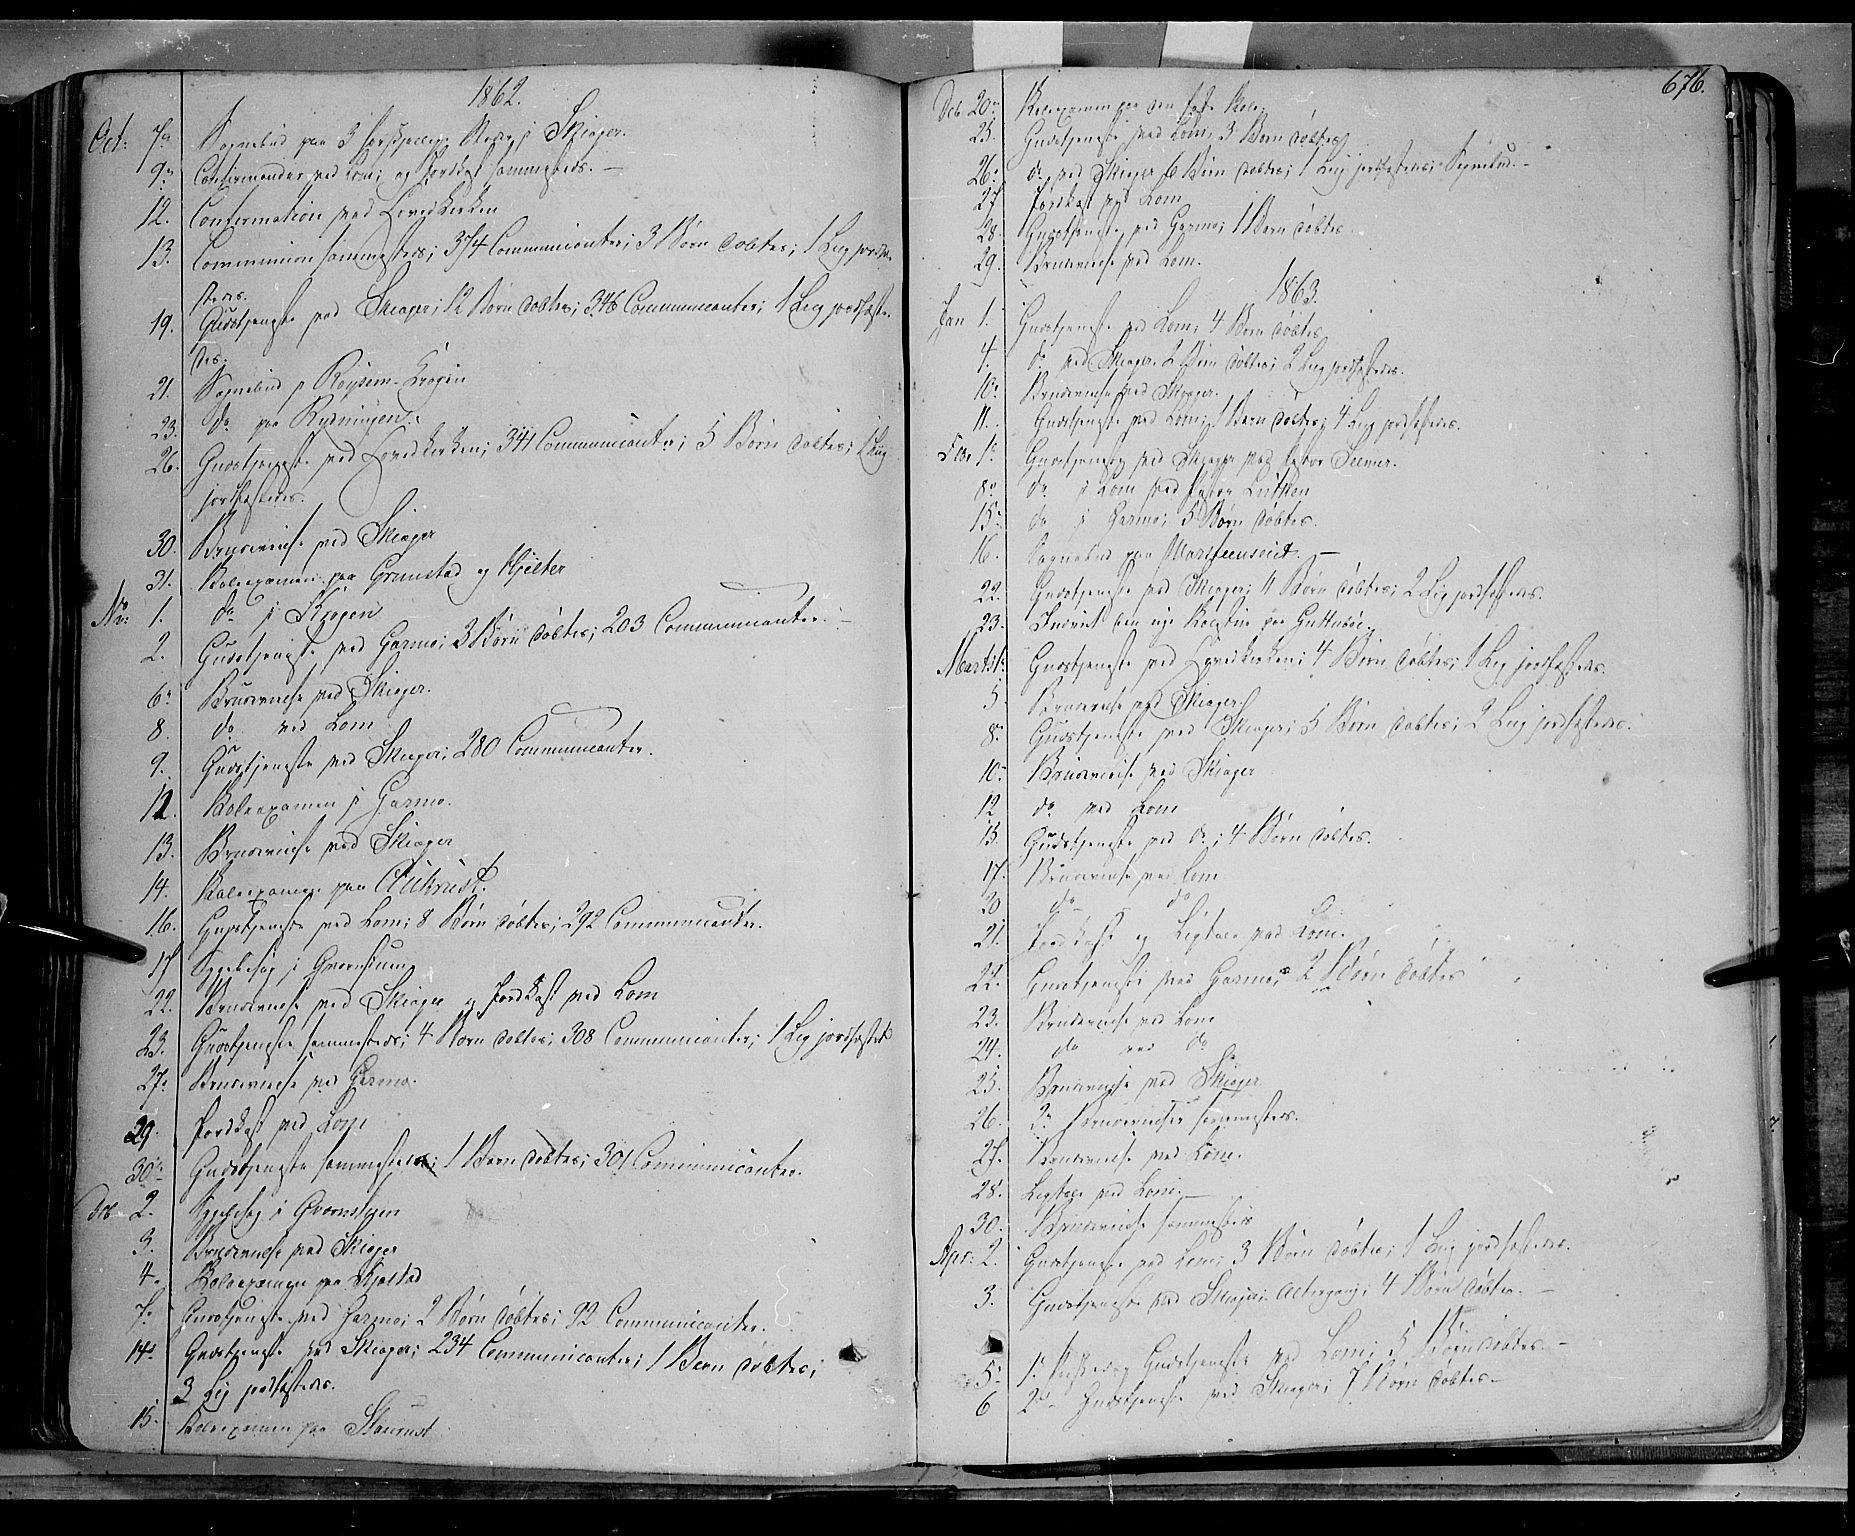 1862.
Oct: 7de Sognebud paa 3 forskjellige Steder i Skiager.
9de Confirmander ved Lom; og Fordkast sammesteds. —
12. Confirmation ved Hovedkirken
13. Communion sammesteds; 374 Communicanter; 3 Børn døbtes; 1 Liig jordfæ-
stedes.
19. Gudstjeneste ved Skiager; 12 Børn døbtes; 346 Communicanter; 1 Liig jordfæste-
des.
21. Sognebud i
23. do paa Rydningen.
26. Gudstjeneste ved Hovedkirken; 341 Communicanter; 5 Børn døbtes; 1 Liig
jordfæstedes.
30. Brudevielse ved Skiager
31. Skoleexamen paa Grimstad og Hjelter
Nov: 1. do i Krogen
2. Gudstjeneste ved Garmo; 3 Børn døbtes; 203 Communicanter. —
6te Brudevielse ved Skiager.
8. do ved Lom
9. Gudstjeneste ved Skiager; 280 Communicanter.
12. Skoleexamen i Garmo.
13. Brudevielse ved Skiager
14. Skoleexamen paa Aukrust.
16. Gudstjeneste ved Lom; 8 Børn døbtes; 292 Communicanter.
17 Sygebesøg i
22. Brudevielse ved Skiager og Fordkast ved Lom
23. Gudstjeneste sammesteds; 4 Børn døbtes; 308 Communicanter; 1 Liig jordfæstet
27de Brudevielse ved Garmo.
29. Fordkast ved Lom
30te Gudstjeneste sammesteds; 1 Barn døbtes; 301 Communicanter.
Deb 2. Sygebesøg i
3. Brudevielse ved Skiager
4de Skoleexamen paa
7de Gudstjeneste ved Garmo; 2 Børn døbtes; 92 Communicanter.
14de Gudstjeneste ved Skiager; 234 Communicanter; 1 Barn døbtes;
3 Lig jordfæstedes.
15. Skoleexamen paa Staurust
676.
Deb 20de Skoleexamen paa den faste Skole.
25. Gudstjeneste ved Lom; 3 Børn døbtes
26de do ved Skiager 6 Børn døbtes; 1 Liig jordfæstedes; Sognebud. —
27 Fordkast ved Lom
28. Gudstjeneste ved Garmo; 1 Barn døbtes.
29. Brudevielse ved Lom.
1863.
Jan 1. Gudstjeneste ved Lom; 4 Børn døbtes
4. do ved Skiager. 2 Børn døbtes; 2 Liig jordfæstedes.
10de Brudevielse ved Skiager.
11. Gudstjeneste ved Lom; 1 Barn døbtes; 4 Liig jordfæstedes.
Febr 1te Gudstjeneste ved Skiager ved Pastor
8de do i Lom ved Pastor Lütken
15de do i Garmo; 5 Børn døbtes.
16. Sognebud paa Marsteenseid. —
22. Gudstjeneste ved Skiager; 11 Børn døbtes; 2 Lig jordfæstedes.
23. Indviet den nye paa Guttubøe.
Marts 1te Gudstjeneste ved Hovedkirken; 4 Børn døbtes; 1 Lig jordfæstedes.
5. Brudevielse ved Skiager
8de Gudstjeneste ved Skiager; 5 Børn døbtes; 2 Liig jordfæstedes.
10de Brudevielse ved Skiager
12 do ved Lom
15. Gudstjeneste ved do; 4 Børn døbtes.
17. Brudevielse ved Lom
20 do do
21. Fordkast og Ligtale ved Lom.
22. Gudstjeneste ved Garmo; 2 Børn døbtes
23. Brudevielse ved Lom
24. do ved do
25. Brudevielse ved Skiager
26. 2de Brudevielser sammesteds.
27. Brudevielse ved Lom.
28. Ligtale ved Lom. —
30. Brudevielse sammesteds
Apr: 2. Gudstjeneste ved Lom; 3 Børn døbtes; 1 Liig jordfæstedes.
3. Gudstjeneste ved Skiager. Altergang; 4 Børn døbtes. —
5te 1te Paaskedag Gudstjeneste ved Lom; 5 Børn døbtes. —
6 2den Gudstjeneste ved Skiager; 7 Børn døbtes —